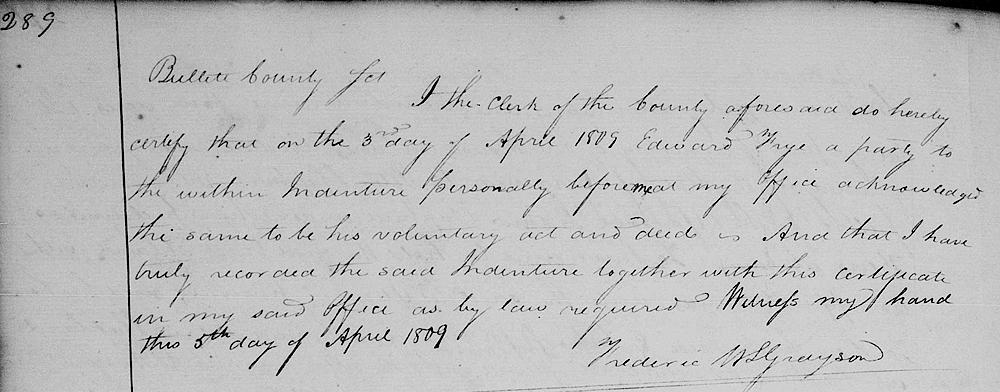 289
Bullitt County Sct
I the Clerk of the County aforesaid do hereby
certify that on the 3rd day of April 1809 Edward Frye a party to
the within Indenture personally before me at my Office acknowledged
the same to be his voluntary act and deed And that I have
truly recorded the said Indenture together with this certificate
in my said Office as by law required Witness my hand
this 5th day of April 1809
Frederic W S Grayson